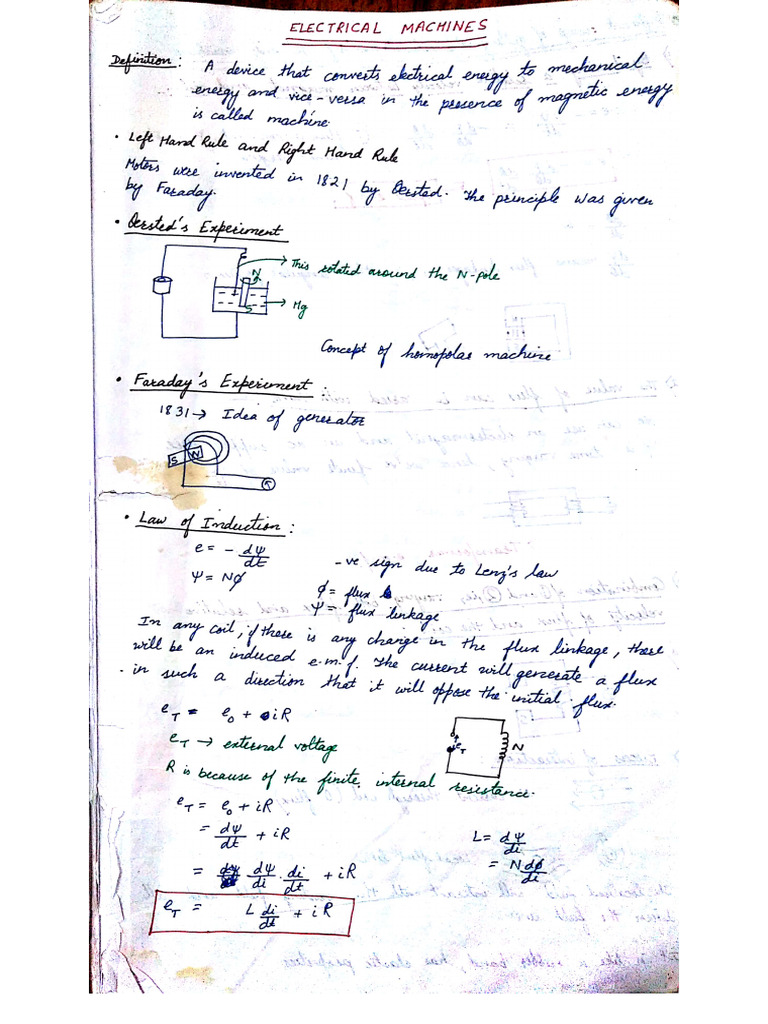 ELECTRICAL MACHINES
Definition : A device that converts electrical energy to mechanical
energy and vice-versa in the presence of magnetic energy
is called machine.
• Left Hand Rule and Right Hand Rule
Motors were invented in 1821 by Oersted. The principle was given
by Faraday.
• Oersted's Experiment
N
→ This rotated around the N-pole
S
→ Mg
Concept of homopolar machine
• Faraday's Experiment :
1831 → Idea of generator
S N
• Law of Induction :
e = - dψ/dt
-ve sign due to Lenz's law
ψ = Nϕ
ϕ = flux
ψ = flux linkage
In any coil, if there is any change in the flux linkage, there
will be an induced e.m.f. The current will generate a flux
in such a direction that it will oppose the initial flux.
e_T = e_0 + iR
e_T → external voltage
e_T N
R is because of the finite internal resistance.
e_T = e_0 + iR
= dψ/dt + iR
L = dψ/di
= N dϕ/di
= dψ/di . di/dt + iR
e_T = L di/dt + iR